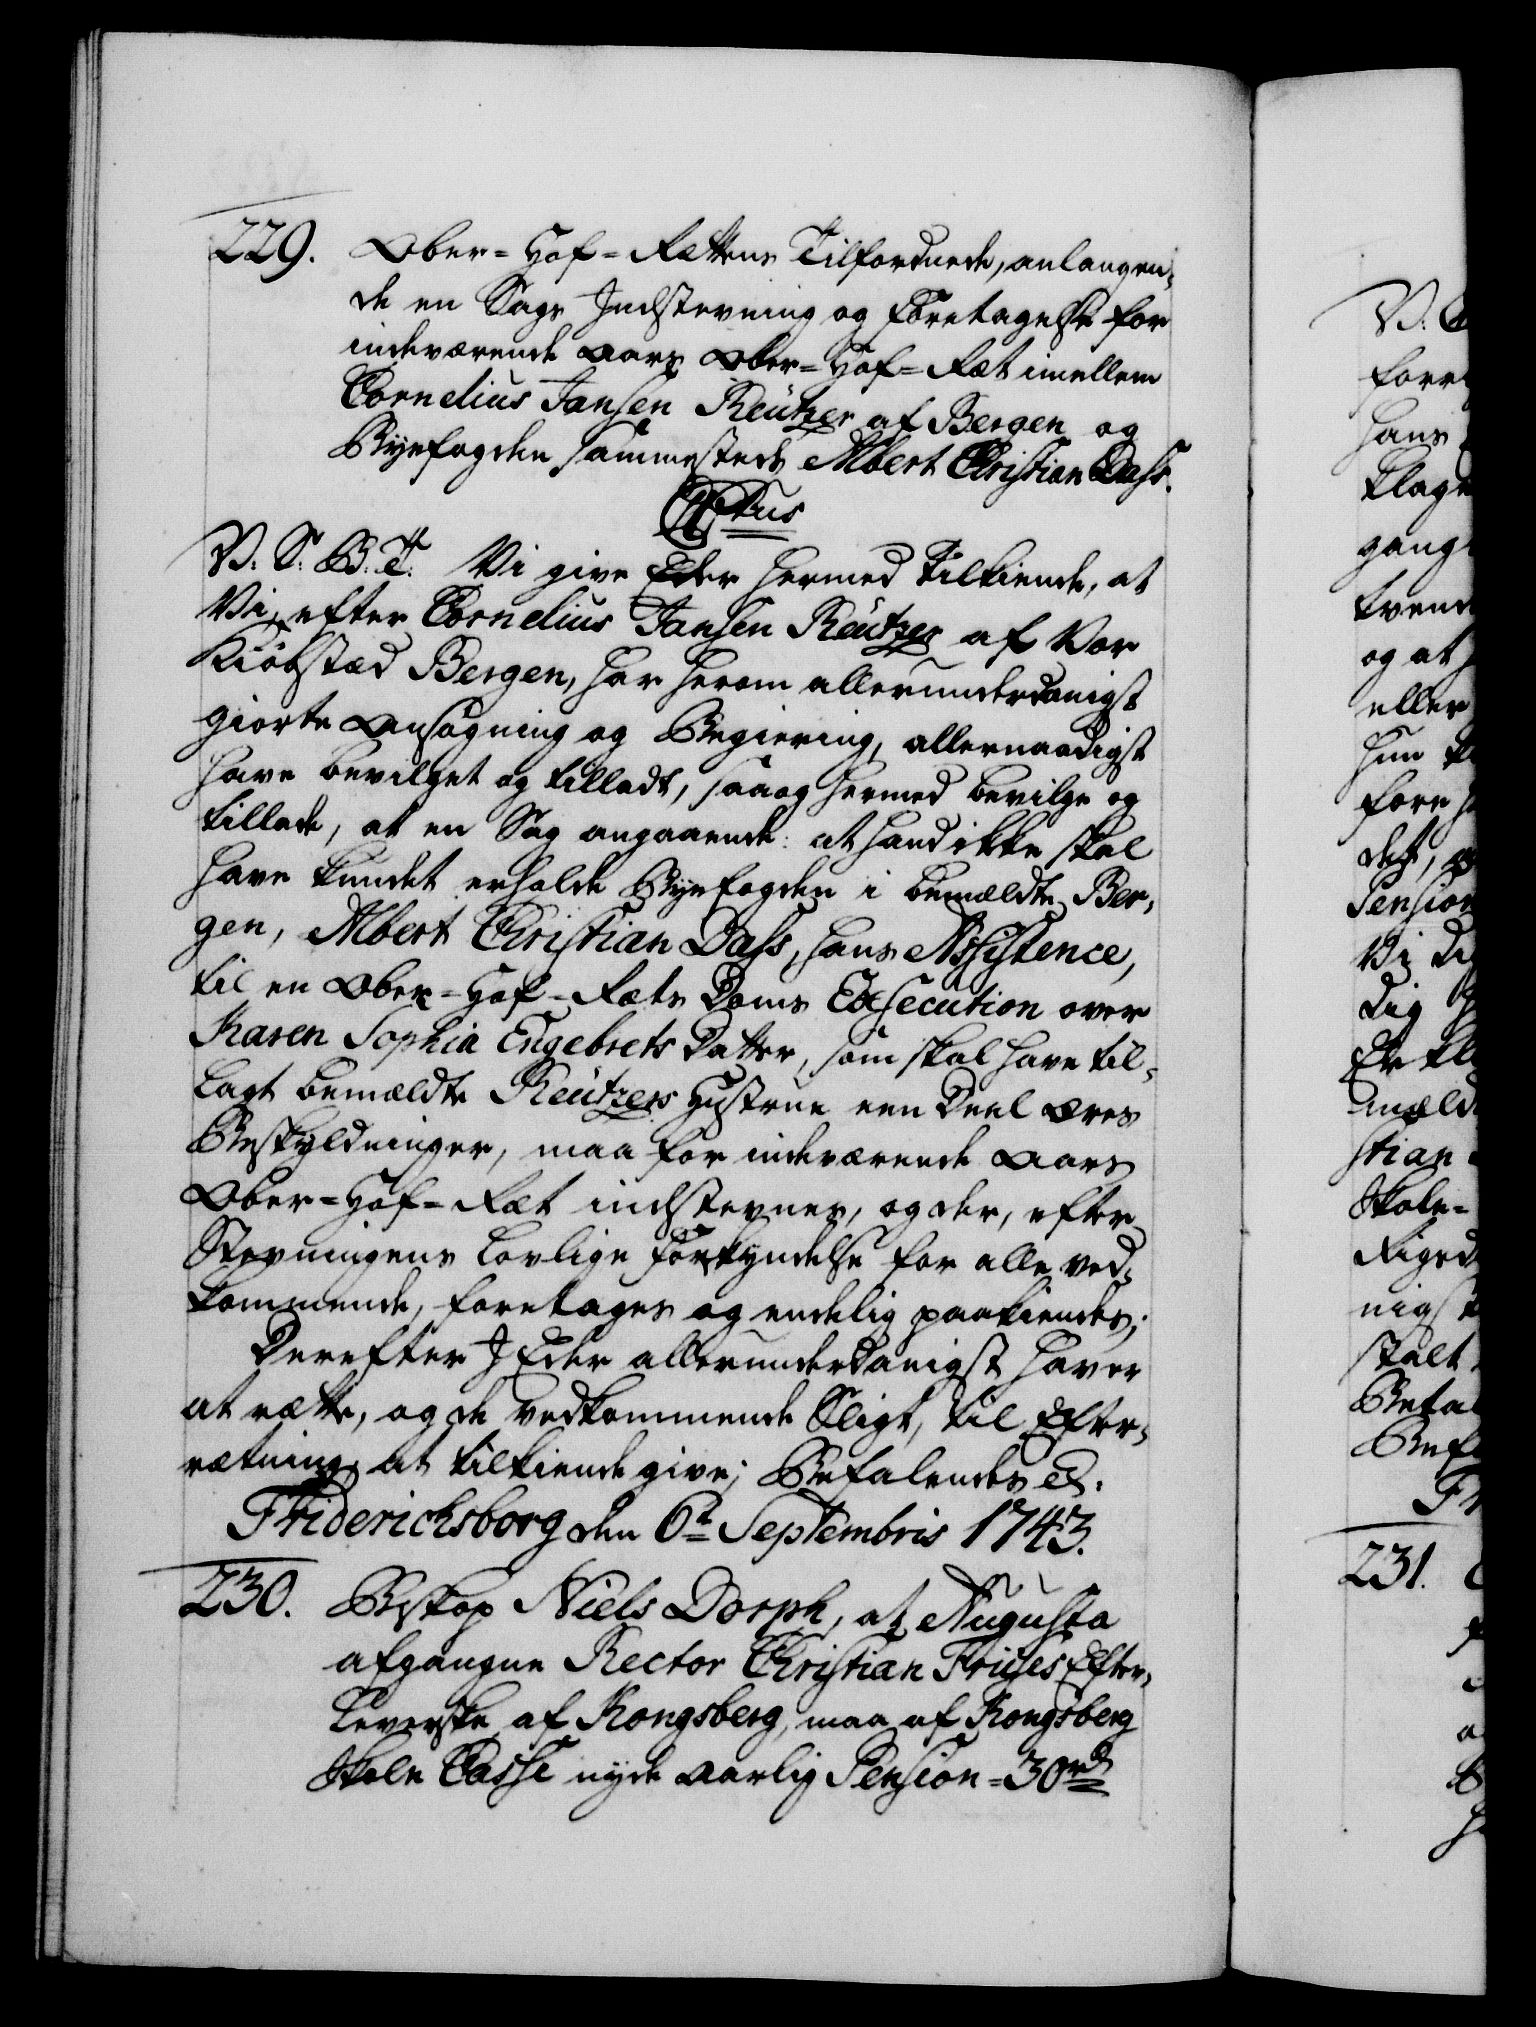 229. Ober-Hof-Rættens Tilforordnede, anlangen-
de en Sags Indstevning og Foretagelse for
indeværende Aars Ober-Hof-Ræt imellem
Cornelius Jansen Reützer af Bergen og
Byefogden sammesteds Albert Christian Dass.
V. S. G. T. Vi give Eder hermed tilkiende, at
Vi, efter Cornelius Jansen Reützer af Vor
Kiøbstæd Bergen, har herom allerunderdanigst
giorte Ansøgning og Begiering, allernaadigst
have bevilget og tilladt, saa og hermed bevilge og
tillade, at en Sag angaaende: at hand ikke skal
have kundet erholde Byefogden i bemældte Ber-
gen, Albert Christian Dass, hans Assistence,
til en Ober-Hof-Ræts Doms Execution over
Karen Sophia Engebrets Datter, som skal have til-
lagt bemældte Reützers Hustrue een Deel Æres
Beskyldninger, maa for indeværende Aars
Ober-Hof-Ræt indstevnes, og der, efter
Stevningens lovlige Forkyndelse for alle ved-
kommende, foretages og endelig paakiendes;
Derefter I Eder allerunderdanigst haver
at rætte, og de vedkommende Sligt, til Efter-
rætning at tilkiende give; Befalendes &.
Friderichsborg den 6t Septembris 1743.
230. Biskop Niels Dorph, at Augusta
afgangne Rector Christian Frises Efter-
leverske af Kongsberg, maa af Kongsberg
Skole Casse nyde aarlig Pension - 30 rd
V.
forr
hans
klage
gang
tvend
og at
eller
hun
fore
det,
Pension
Vi
Dig
Er
mæld
stian
Skole-
Riged
nigst
stalt
Befal
Bef
Fr
231.